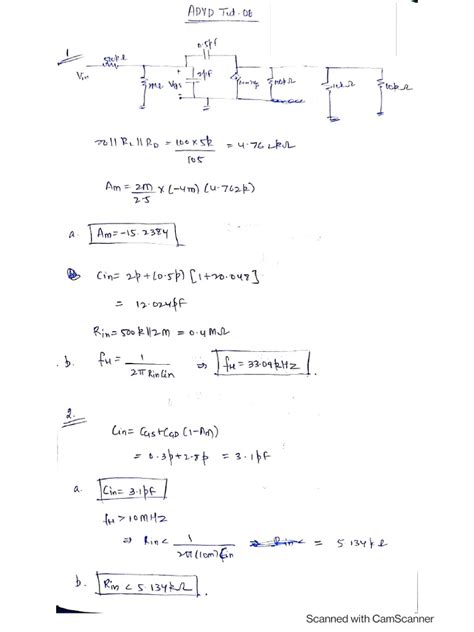 ADVD Tut-06
1.
0.5pf
500k Ω
Vin
2MΩ
+
Vgs
-
2pf
100kΩ
10kΩ
10kΩ
ro||RL||RD = 100×5k/105 = 4.762kΩ
Am = 2M/2.5 × (-4m) (4.762k)
a. Am = -15.2384
Cin = 2p + (0.5p) [1+20.048]
= 12.024pF
Rin = 500k||2M = 0.4MΩ
b. fH = 1/2π Rin Cin ⇒ fH = 33.09kHz.
2.
Cin = CGS + CGD (1-Am)
= 0.3p + 2.8p = 3.1pF
a. Cin = 3.1pF
fH > 10MHz
⇒ Rin < 1/2π(10m) Cin = 5.134k Ω
b. Rin < 5.134kΩ.
Scanned with CamScanner